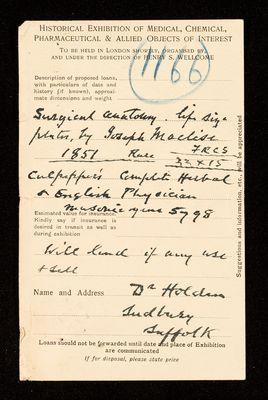 HISTORICAL EXHIBITION OF MEDICAL, CHEMICAL,
PHARMACEUTICAL & ALLIED OBJECTS OF INTEREST
TO BE HELD IN LONDON SHORTLY, ORGANISED BY
AND UNDER THE DIRECTION OF HENRY S. WELLCOME
1166
Description of proposed loans,
with particulars of date and
history (if known), approxi-
mate dimensions and weight
Surgical anatomy. life size
plates, by Joseph Maclise
1851 Rare FRCS
22 x 15
Culpepper's Complete Herbal
& English Physician
Masonic year 5798
Estimated value for insurance.
Kindly say if insurance is
desired in transit as well as
during exhibition
Will lend if any use
& sell
Name and Address
Dr Holden
Sudbury
Suffolk
Loans should not be forwarded until date and place of Exhibition
are communicated
If for disposal, please state price
Suggestions and information, etc., will be appreciated